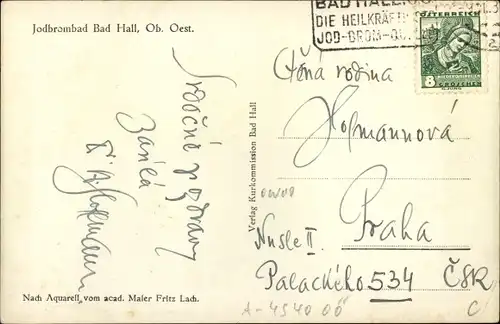 Jodbrombad Bad Hall, Ob. Oest.
Srdečné pozdravy
zasílá
Hofmann
Nach Aquarell vom acad. Maler Fritz Lach.
Verlag Kurkommission Bad Hall
BAD HALL
DIE HEILKRÄF
JOD-BROM-QU
ÖSTERREICH
8
GROSCHEN
Ctěná rodina
Hofmannová
Praha
Nusle II
Palackého 534 ČSR
A-4540 OÖ